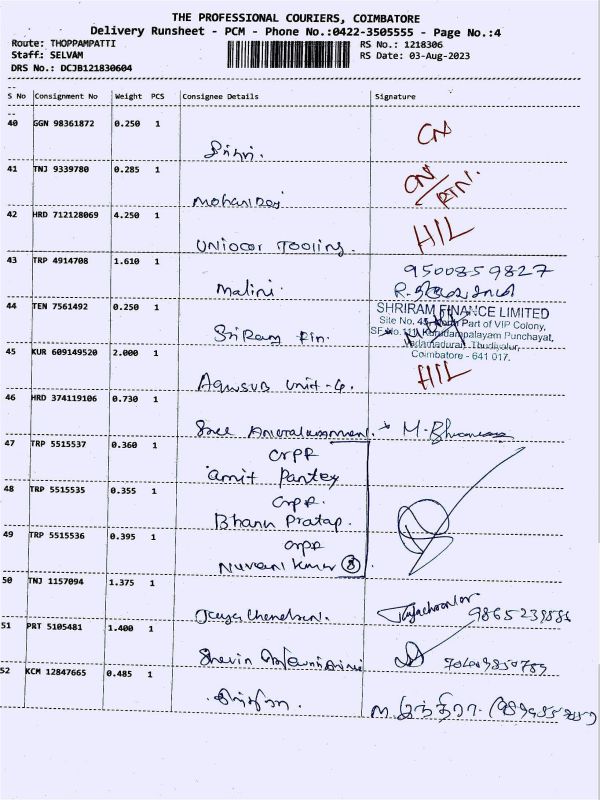 THE PROFESSIONAL COURIERS, COIMBATORE
Delivery Runsheet - PCM - Phone No.:0422-3505555 - Page No.:4
Route: THOPPAMPATTI RS No.: 1218306
Staff: SELVAM RS Date: 03-Aug-2023
DRS No.: DCJB121830604
S No Consignment No Weight PCS Consignee Details Signature
40 GGN 98361872 0.250 1 CN
41 TNJ 9339780 0.285 1 CN/RTN
Mohan Raj
42 HRD 712128069 4.250 1 H/L
Uniocor Tooling.
43 TRP 4914708 1.610 1 9500859827
Malini
44 TEN 7561492 0.250 1 SHRIRAM FINANCE LIMITED
Site No. Part of VIP Colony,
Sri Ram Fin. Panchayat,
Coimbatore - 641 017.
45 KUR 609149520 2.000 1 H/L
Aqusub Unit-4.
46 HRD 374119106 0.730 1
Sree
47 TRP 5515537 0.360 1 CRPF
Amit Pantey
48 TRP 5515535 0.355 1 CRPF.
Bhanu Pratap.
49 TRP 5515536 0.395 1 CRPF
Kumar 3
50 TNJ 1157094 1.375 1
Jaya Chandran. 9865239886
51 PRT 5105481 1.400 1
Shevin
52 KCM 12847665 0.485 1
M. இந்திரா